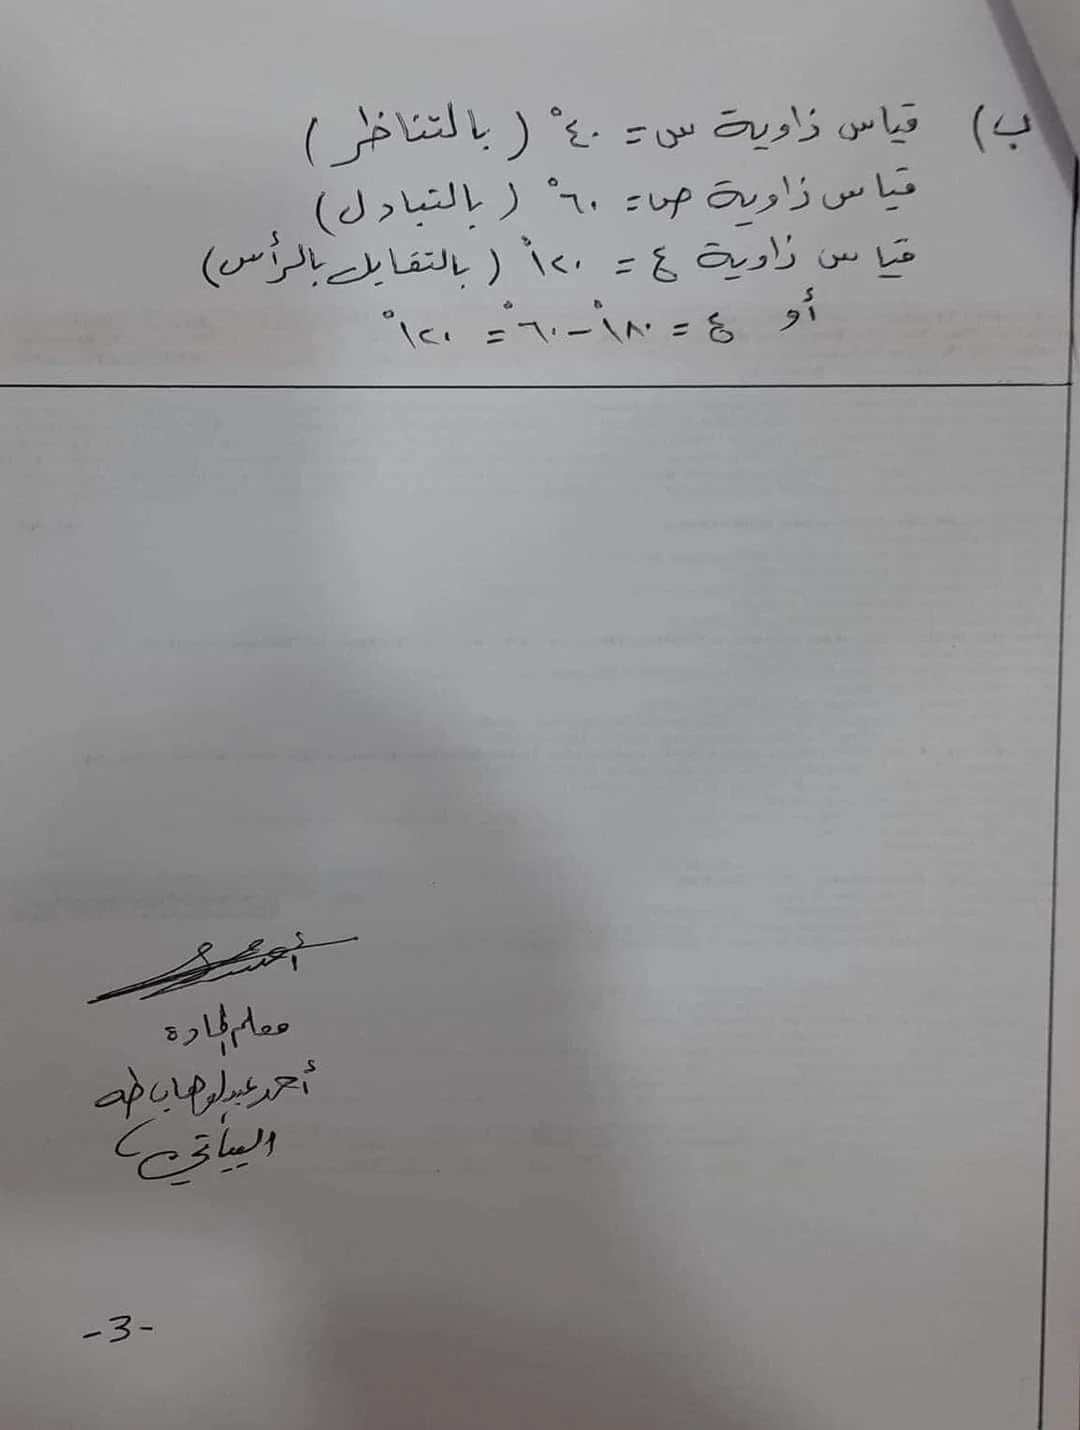 ب) قياس زاوية س = ٤٠° (بالتناظر)
قياس زاوية ص = ٦٠° (بالتبادل)
قياس زاوية ع = ١٢٠° (بالتقابل بالرأس)
أو ع = ١٨٠° - ٦٠° = ١٢٠°
معلم المادة
أحمد عبدالوهاب طه
البياتي
-3-